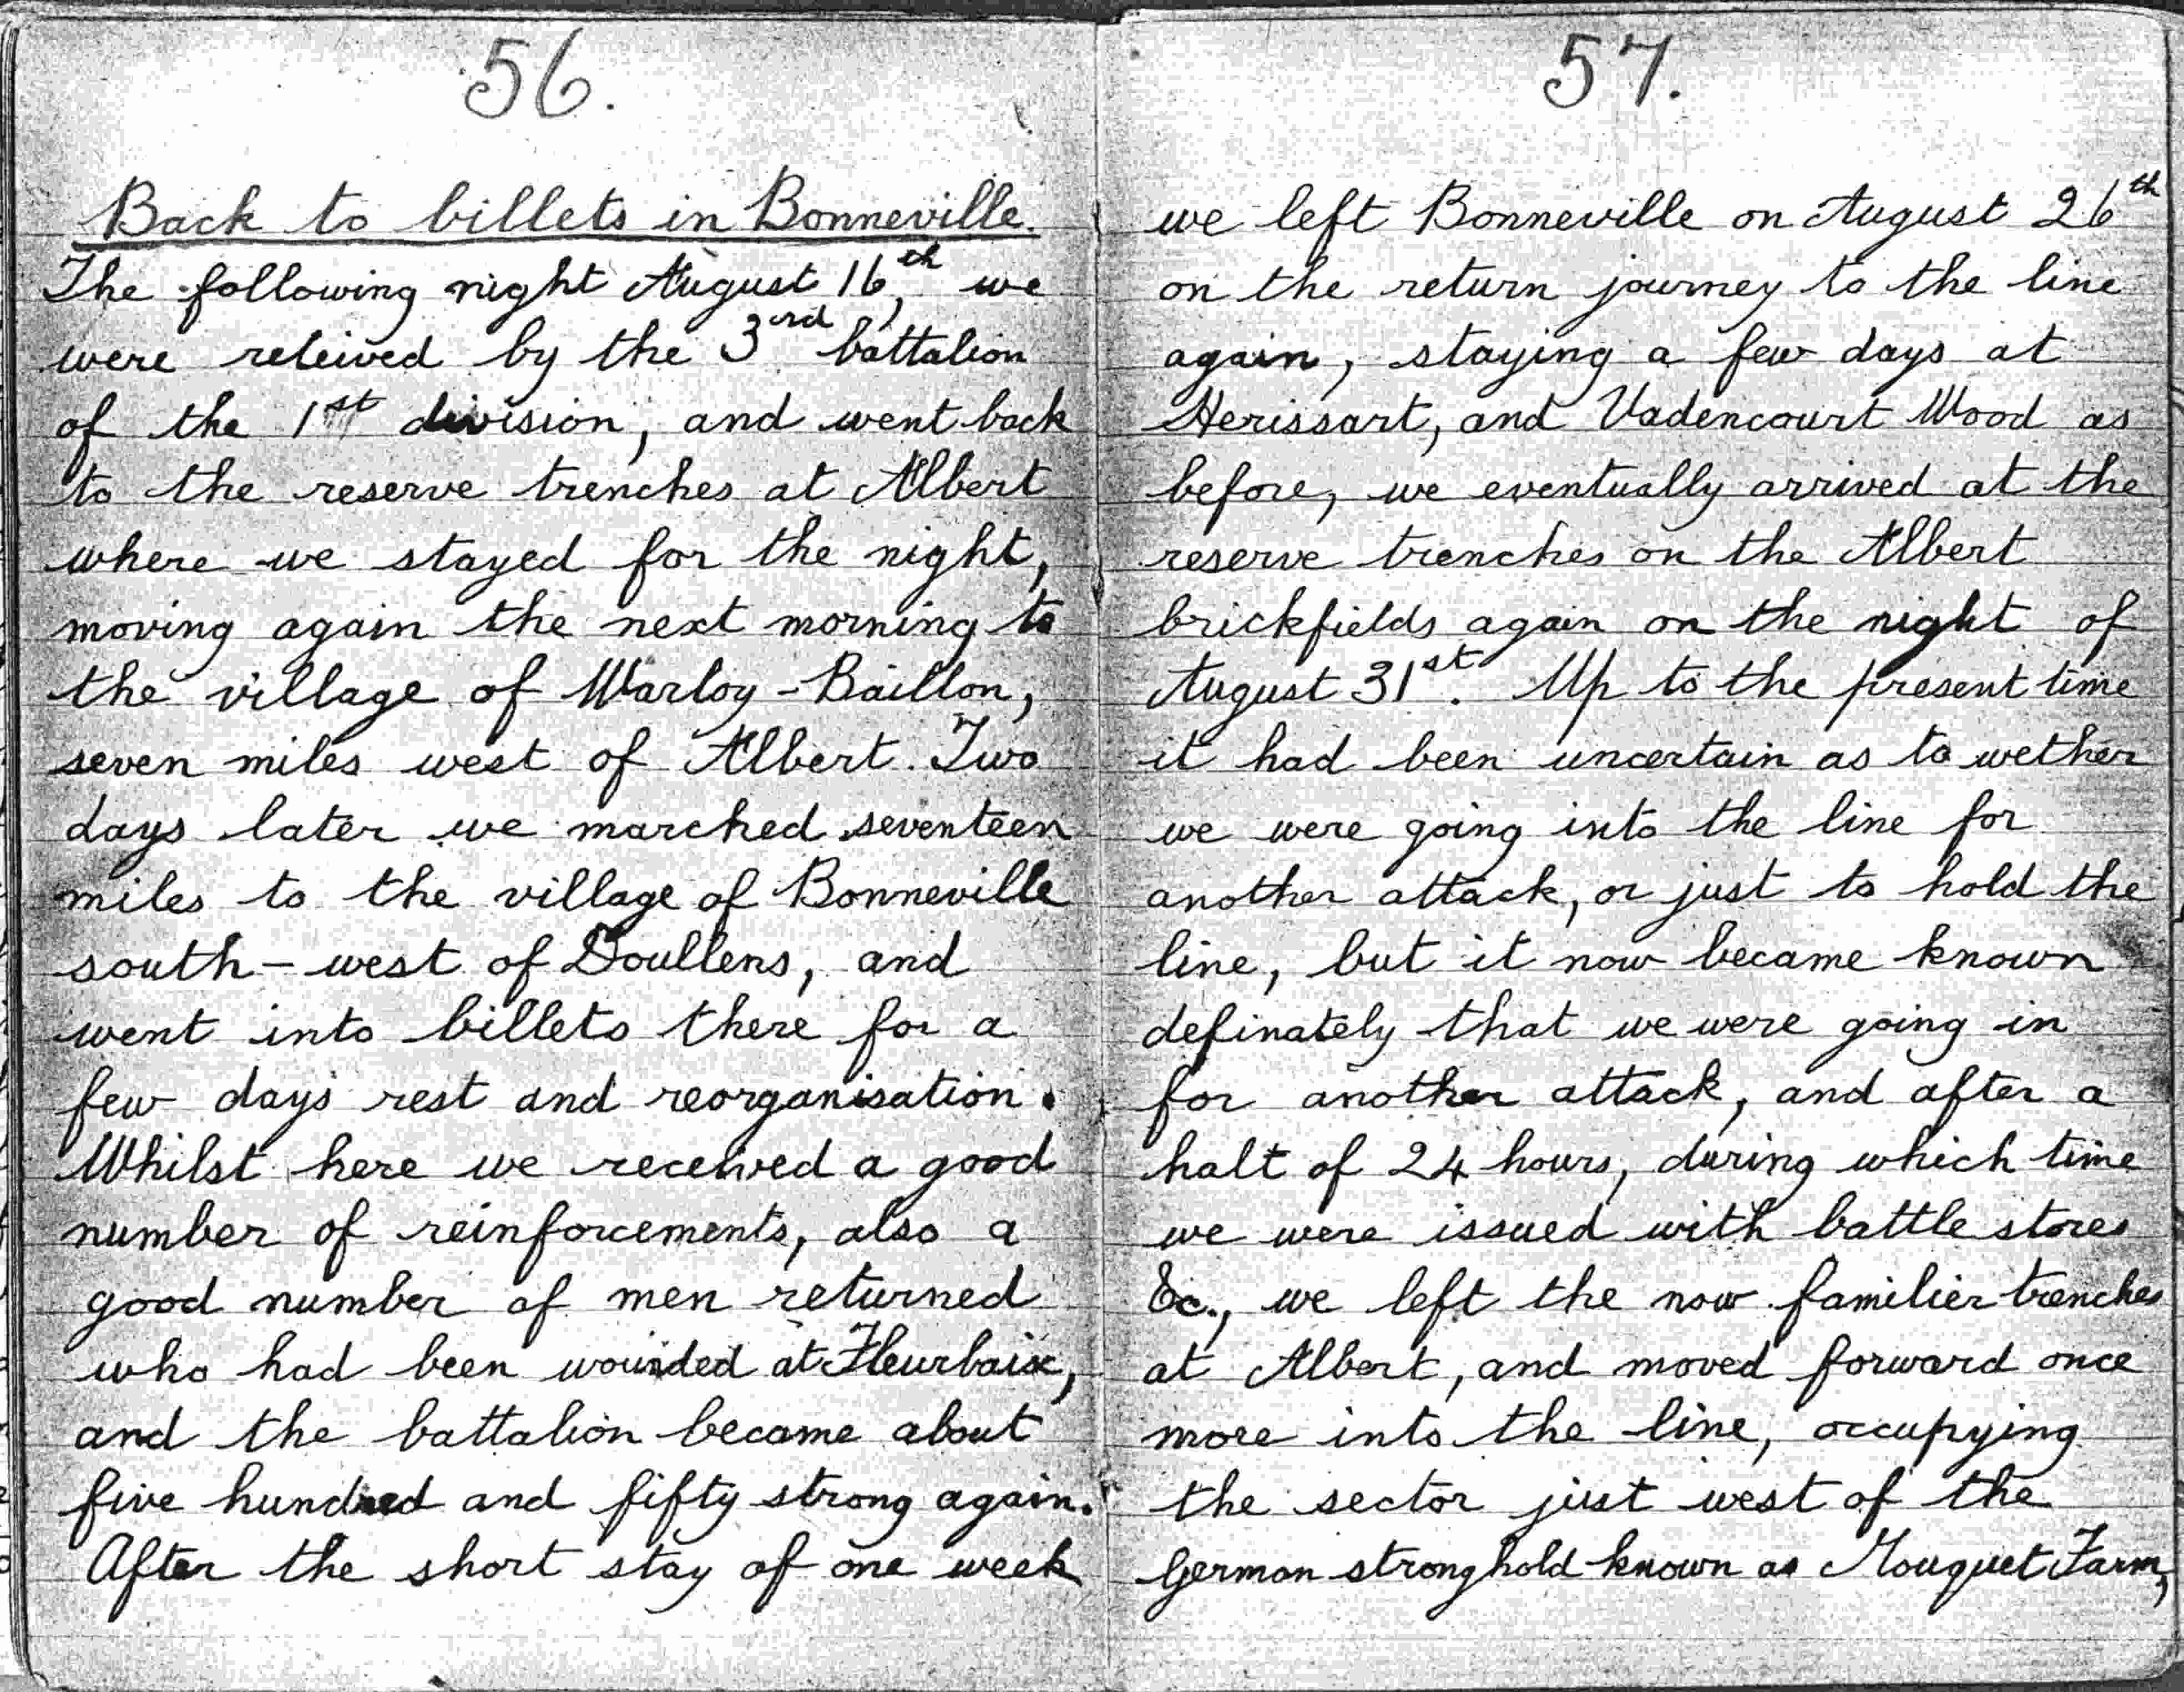 56.
Back to billets in Bonneville.
The following night August 16th, we
were releived by the 3rd battalion
of the 1st division, and went back
to the reserve trenches at Albert
where we stayed for the night,
moving again the next morning to
the village of Warloy-Baillon,
seven miles west of Albert. Two
days later we marched seventeen
miles to the village of Bonneville
south-west of Doullens, and
went into billets there for a
few days rest and reorganisation.
Whilst here we received a good
number of reinforcements, also a
good number of men returned
who had been wounded at Fleurbaix,
and the battalion became about
five hundred and fifty strong again.
After the short stay of one week
57.
we left Bonneville on August 26th
on the return journey to the line
again, staying a few days at
Herissart, and Vadencourt Wood as
before, we eventually arrived at the
reserve trenches on the Albert
brickfields again on the night of
August 31st. Up to the present time
it had been uncertain as to wether
we were going into the line for
another attack, or just to hold the
line, but it now became known
definately that we were going in
for another attack, and after a
halt of 24 hours, during which time
we were issued with battle stores
&c., we left the now familier trenches
at Albert, and moved forward once
more into the line, occupying
the sector just west of the
German stronghold known as Mouquet Farm,